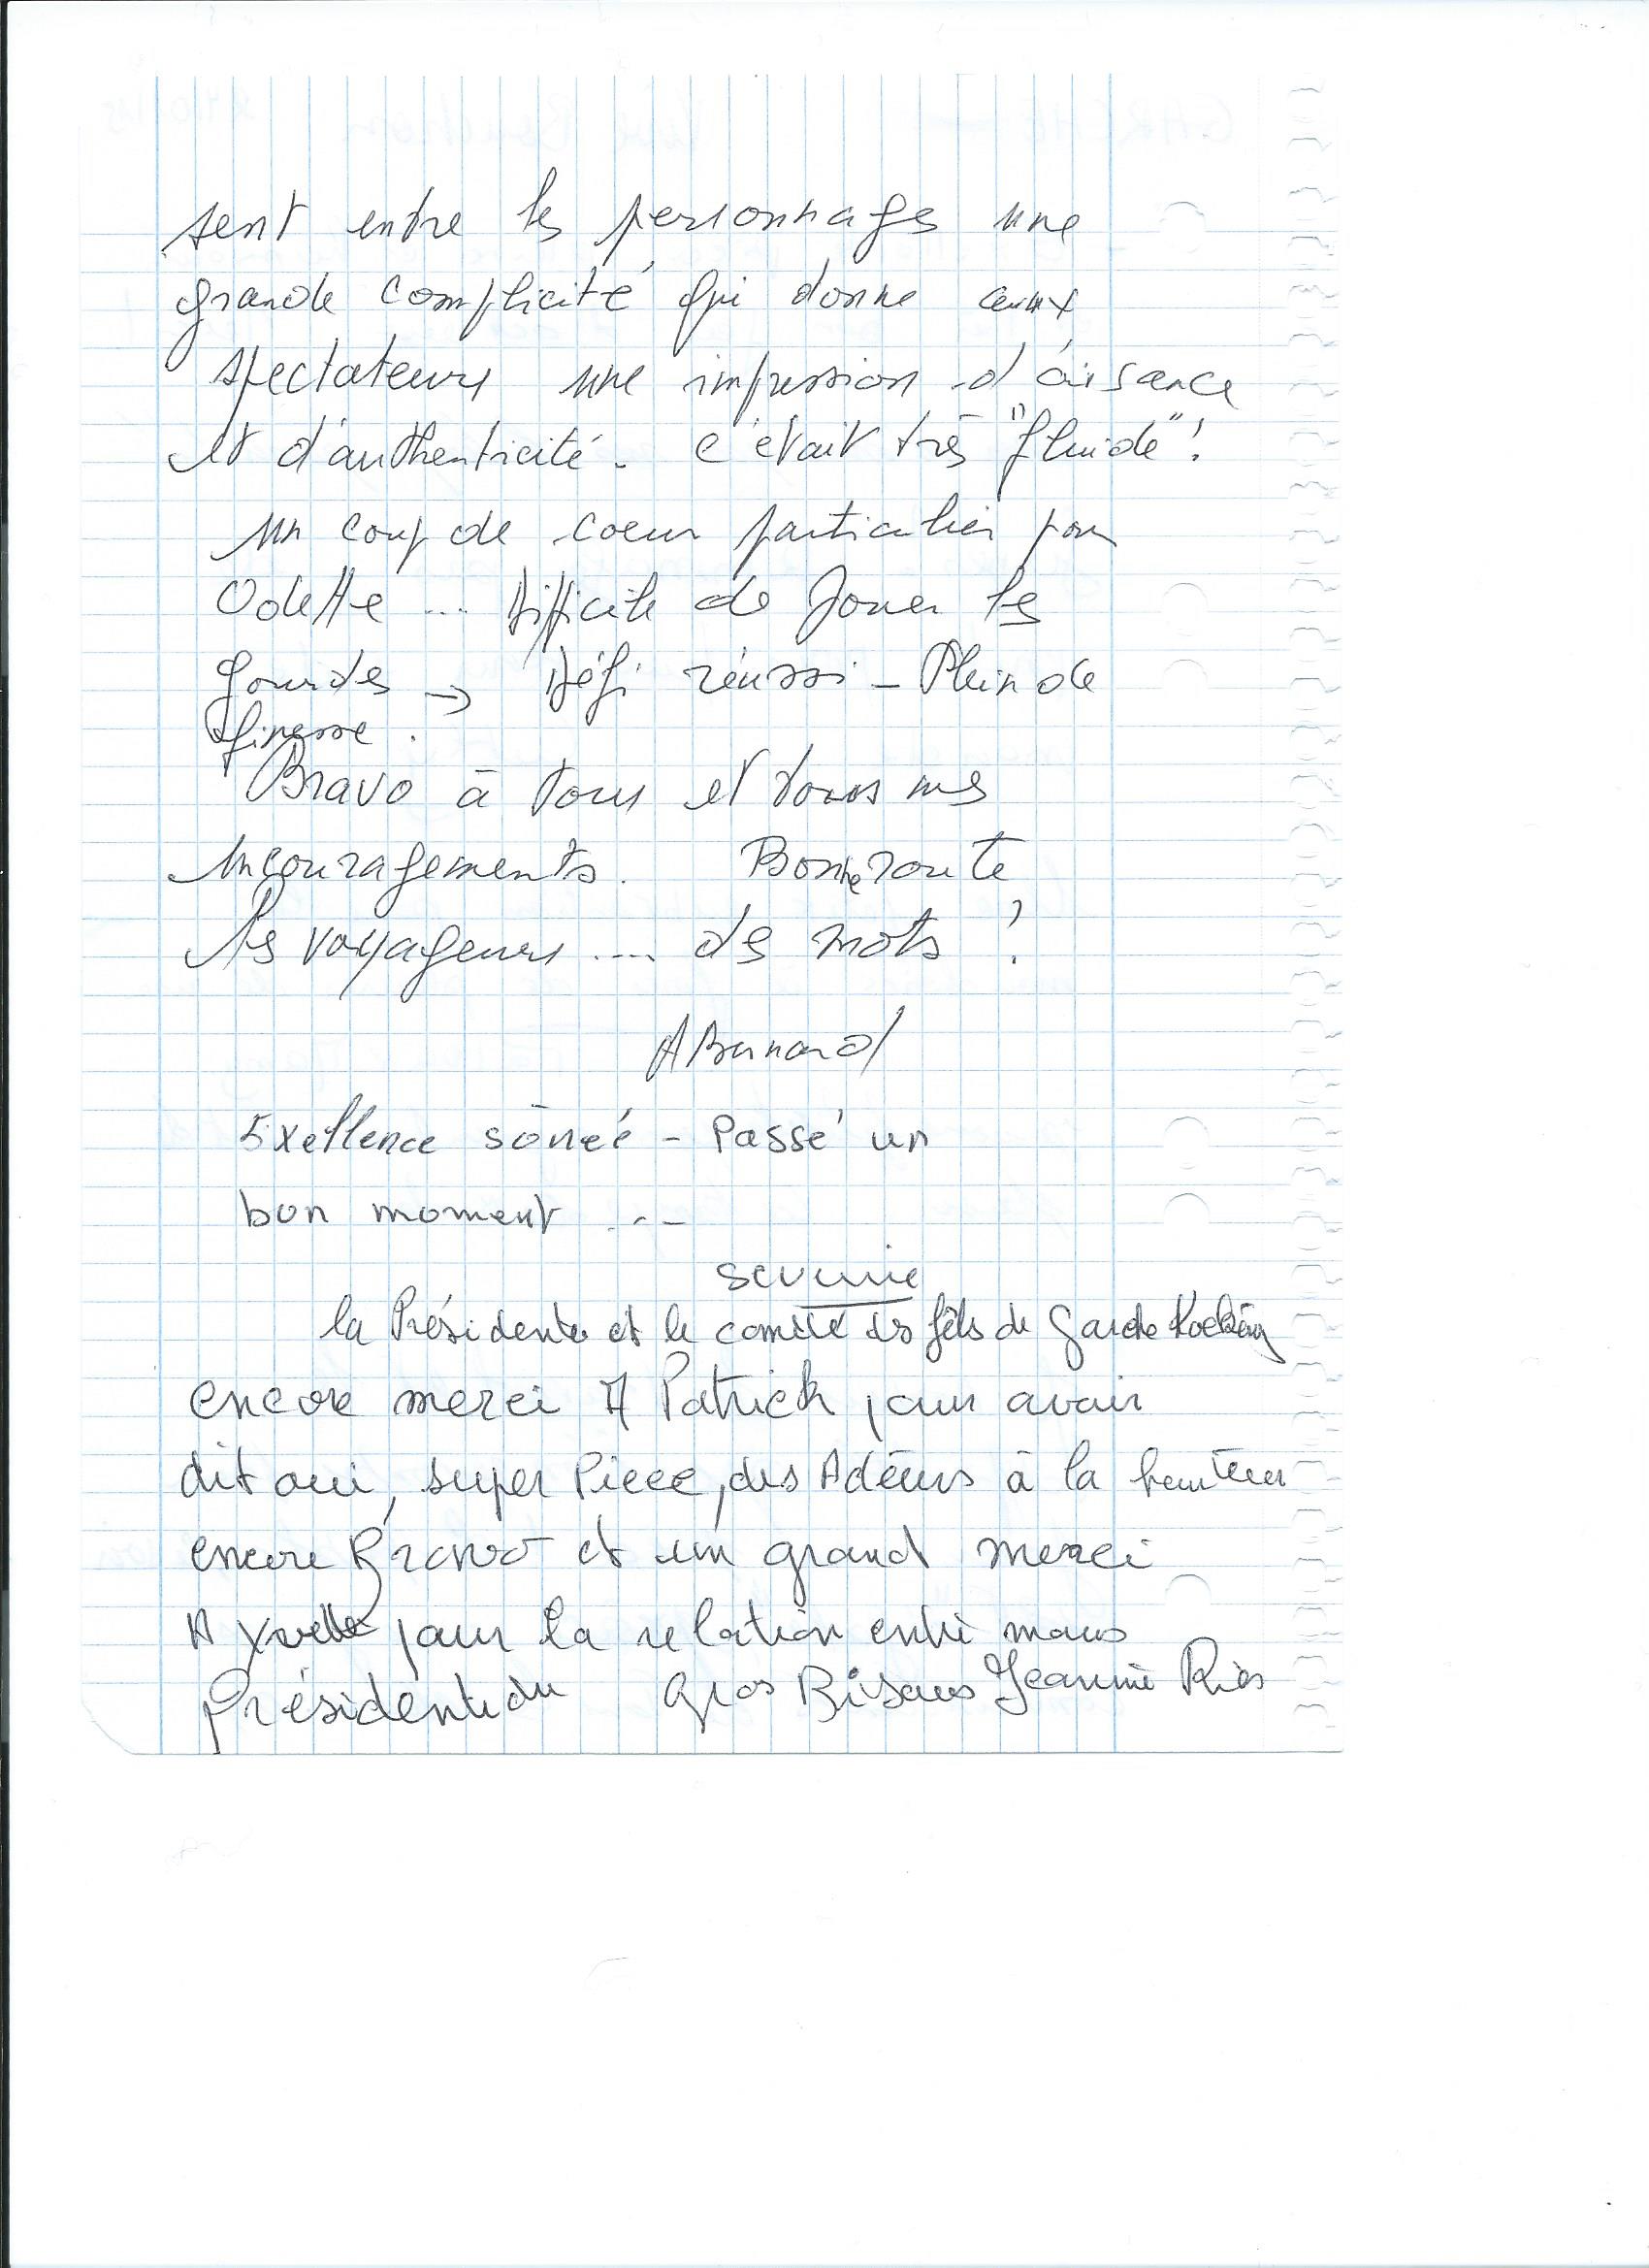 sent entre les personnages une
grande complicité qui donne aux
spectateurs une impression d'aisance
et d'authenticité. C'était très "fluide"!
Un coup de coeur particulier pour
Odette ... Difficile de jouer les
gourdes → Défi réussi - Plein de
finesse.
Bravo à tous et tous mes
encouragements. Bonne route
les voyageurs .... des mots !
A Bernard
Exellence soirée - Passé un
bon moment ...
Severine
la Présidente et le comité des fêtes de Garche
encore merci A Patrick pour avoir
dit oui, super Piece, des Acteurs à la hauteur
encore Bravo et un grand merci
A Yvette pour la relation entre nous
Présidente du Gros Bisous Jeannine Riès